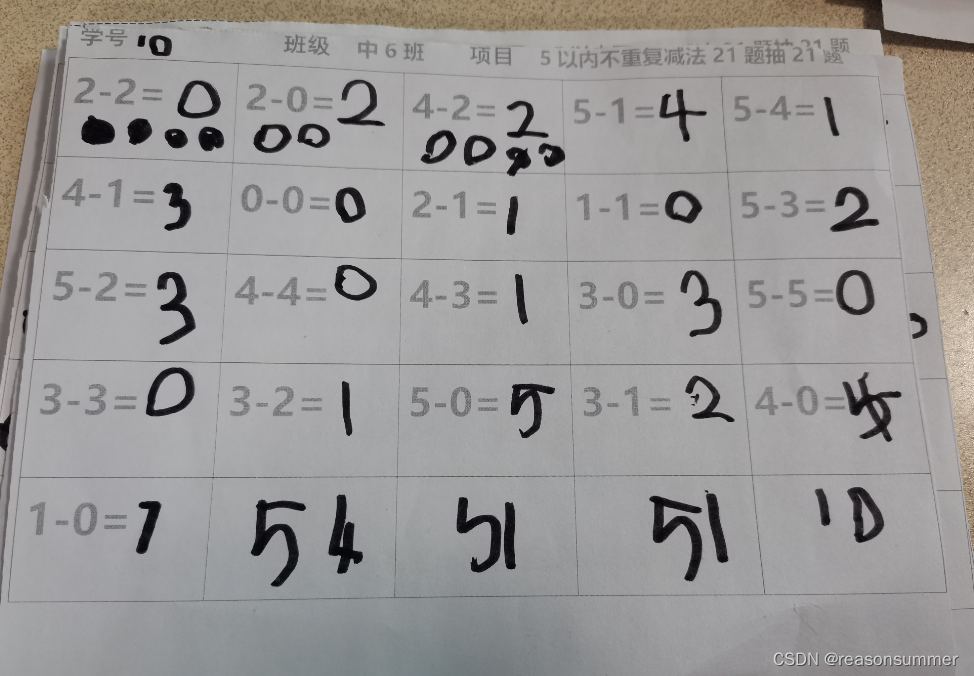 学号 10 班级 中6班 项目 5以内不重复减法21题抽21题
2-2=0 2-0=2 4-2=2 5-1=4 5-4=1
4-1=3 0-0=0 2-1=1 1-1=0 5-3=2
5-2=3 4-4=0 4-3=1 3-0=3 5-5=0
3-3=0 3-2=1 5-0=5 3-1=2 4-0=
1-0=1 54 51 51 10
CSDN @reasonsummer